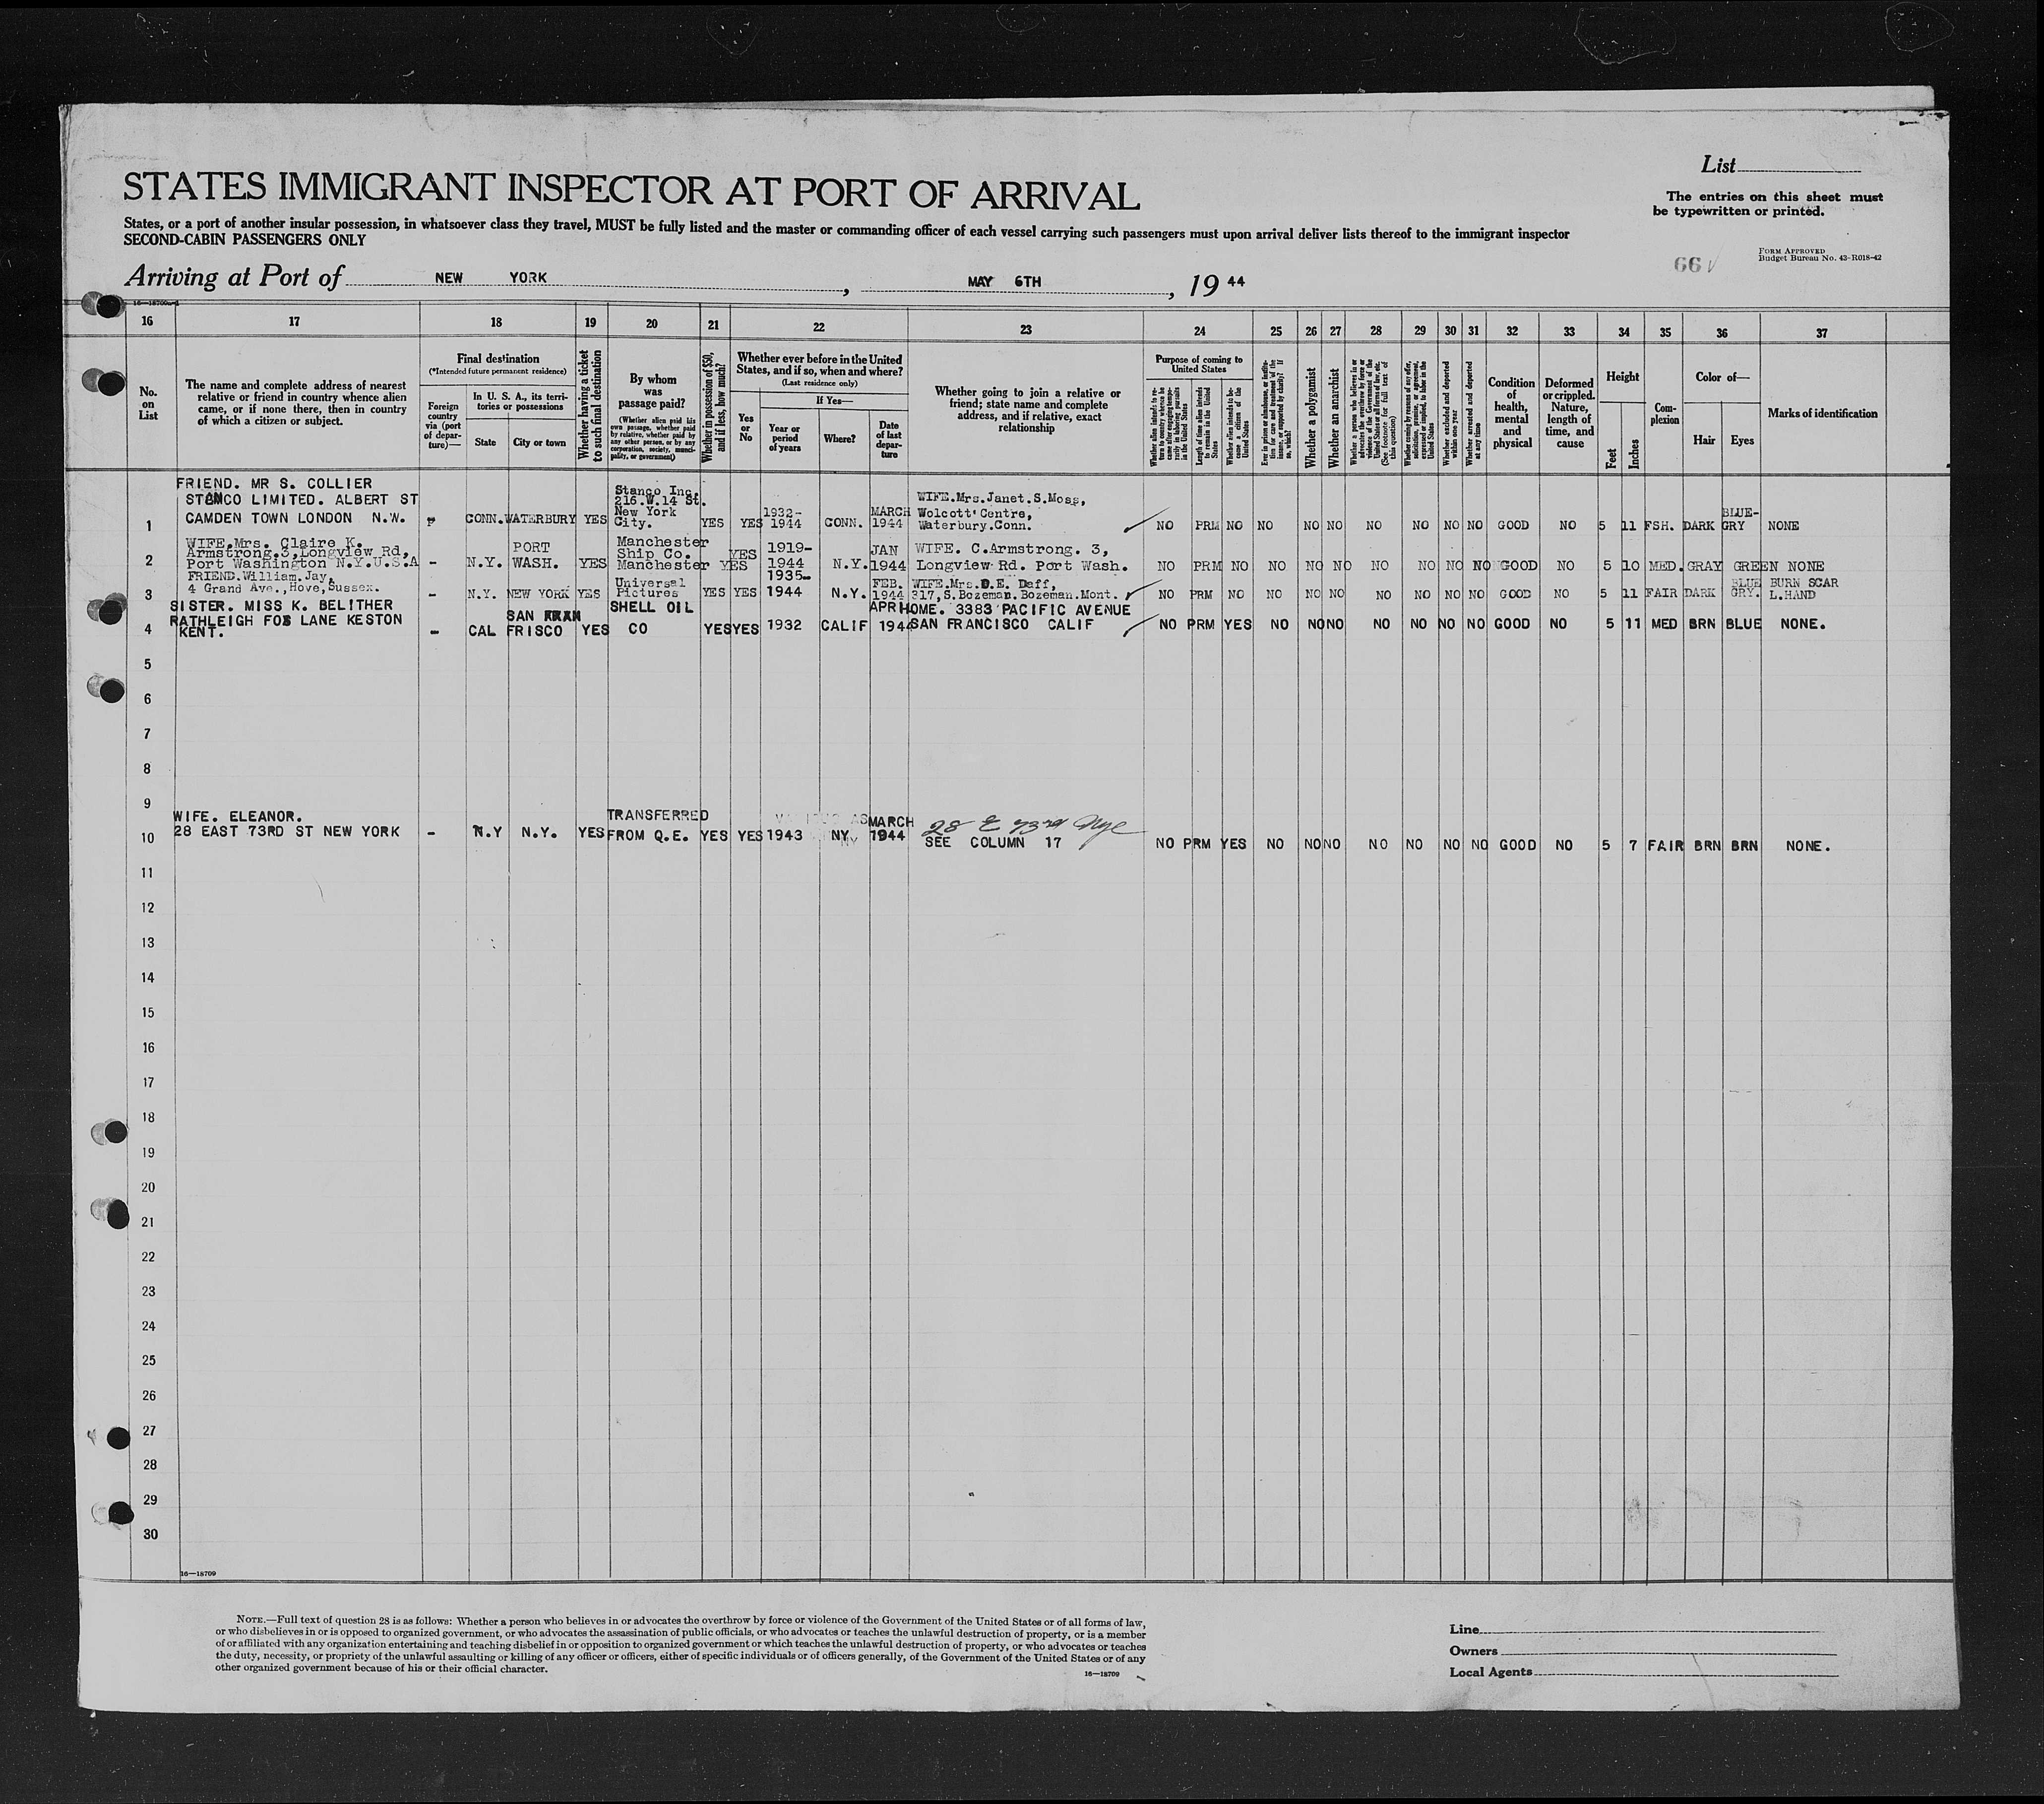 List
STATES IMMIGRANT INSPECTOR AT PORT OF ARRIVAL
The entries on this sheet must
be typewritten or printed.
States, or a port of another insular possession, in whatsoever class they travel, MUST be fully listed and the master or commanding officer of each vessel carrying such passengers must upon arrival deliver lists thereof to the immigrant inspector
SECOND-CABIN PASSENGERS ONLY
FORM APPROVED
Budget Bureau No. 43-R018-42
66
Arriving at Port of NEW YORK, MAY 6TH, 19 44
16—18709
16 17 18 19 20 21 22 23 24 25 26 27 28 29 30 31 32 33 34 35 36 37
No. on List
The name and complete address of nearest
relative or friend in country whence alien
came, or if none there, then in country
of which a citizen or subject.
Final destination
(*Intended future permanent residence)
Foreign country via (port of departure)—
In U. S. A., its territories or possessions
State
City or town
Whether having a ticket to such final destination
By whom was passage paid?
(Whether alien paid his own passage, whether paid by relative, whether paid by any other person, or by any corporation, society, municipality, or government)
Whether in possession of $50, and if less, how much?
Whether ever before in the United States, and if so, when and where?
(Last residence only)
Yes or No
If Yes—
Year or period of years
Where?
Date of last departure
Whether going to join a relative or
friend; state name and complete
address, and if relative, exact
relationship
Purpose of coming to United States
Length of time alien intends to remain in the United States
Whether alien intends to become a citizen of the United States
Whether a polygamist
Whether an anarchist
Whether excluded and deported within one year
Whether arrested and deported at any time
Condition of health, mental and physical
Deformed or crippled. Nature, length of time, and cause
Height
Feet
Inches
Complexion
Color of—
Hair
Eyes
Marks of identification
FRIEND. MR S. COLLIER
STANCO LIMITED. ALBERT ST
CAMDEN TOWN LONDON N.W.
1 CONN. WATERBURY YES Stanco Inc. 216.W.14 St. New York City. YES YES 1932-1944 CONN. MARCH 1944 WIFE.Mrs.Janet.S.Moss, Wolcott Centre, Waterbury.Conn. NO PRM NO NO NO NO NO NO NO NO GOOD NO 5 11 FSH. DARK BLUE-GRY NONE
WIFE.Mrs. Claire K.
Armstrong.3,Longview Rd,
Port Washington N.Y.U.S.A
2 - N.Y. PORT WASH. YES Manchester Ship Co. Manchester YES YES 1919-1944 N.Y. JAN 1944 WIFE. C.Armstrong. 3, Longview Rd. Port Wash. NO PRM NO NO NO NO NO NO NO NO GOOD NO 5 10 MED. GRAY GREEN NONE
FRIEND.William.Jay,
4 Grand Ave.,Hove,Sussex.
3 - N.Y. NEW YORK YES Universal Pictures YES YES 1935-1944 N.Y. FEB. 1944 WIFE.Mrs.D.E. Daff, 317,S.Bozeman.Bozeman.Mont. NO PRM NO NO NO NO NO NO NO NO GOOD NO 5 11 FAIR DARK BLUE GRY. BURN SCAR L.HAND
SISTER. MISS K. BELITHER
RATHLEIGH FOX LANE KESTON
KENT.
4 - CAL SAN FRISCO YES SHELL OIL CO YES YES 1932 CALIF APR 1944 HOME. 3383 PACIFIC AVENUE SAN FRANCISCO CALIF NO PRM YES NO NO NO NO NO NO NO GOOD NO 5 11 MED BRN BLUE NONE.
5
6
7
8
9
WIFE. ELEANOR.
28 EAST 73RD ST NEW YORK
10 - N.Y N.Y. YES TRANSFERRED FROM Q.E. YES YES 1943 NY MARCH 1944 28 E 73rd Nyc SEE COLUMN 17 NO PRM YES NO NO NO NO NO NO NO GOOD NO 5 7 FAIR BRN BRN NONE.
11
12
13
14
15
16
17
18
19
20
21
22
23
24
25
26
27
28
29
30
16—18709
NOTE.—Full text of question 28 is as follows: Whether a person who believes in or advocates the overthrow by force or violence of the Government of the United States or of all forms of law,
or who disbelieves in or is opposed to organized government, or who advocates the assassination of public officials, or who advocates or teaches the unlawful destruction of property, or is a member
of or affiliated with any organization entertaining and teaching disbelief in or opposition to organized government or which teaches the unlawful destruction of property, or who advocates or teaches
the duty, necessity, or propriety of the unlawful assaulting or killing of any officer or officers, either of specific individuals or of officers generally, of the Government of the United States or of any
other organized government because of his or their official character.
16—18709
Line
Owners
Local Agents